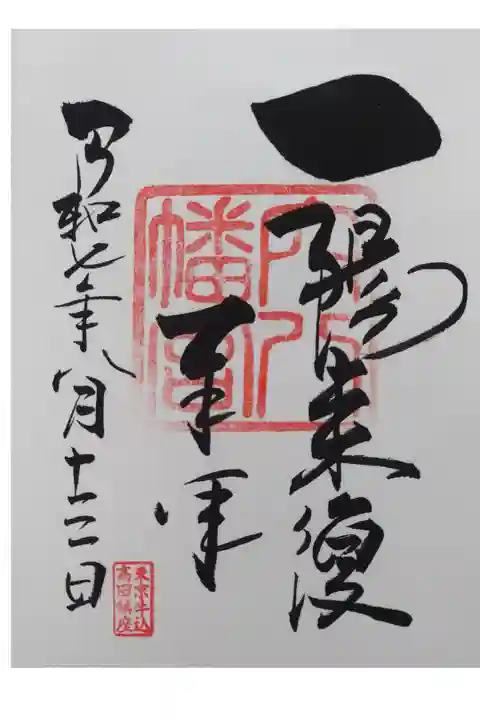 一陽来復
奉拝
令和七年八月十二日
穴八
幡宮
東京牛込
高田鎮座